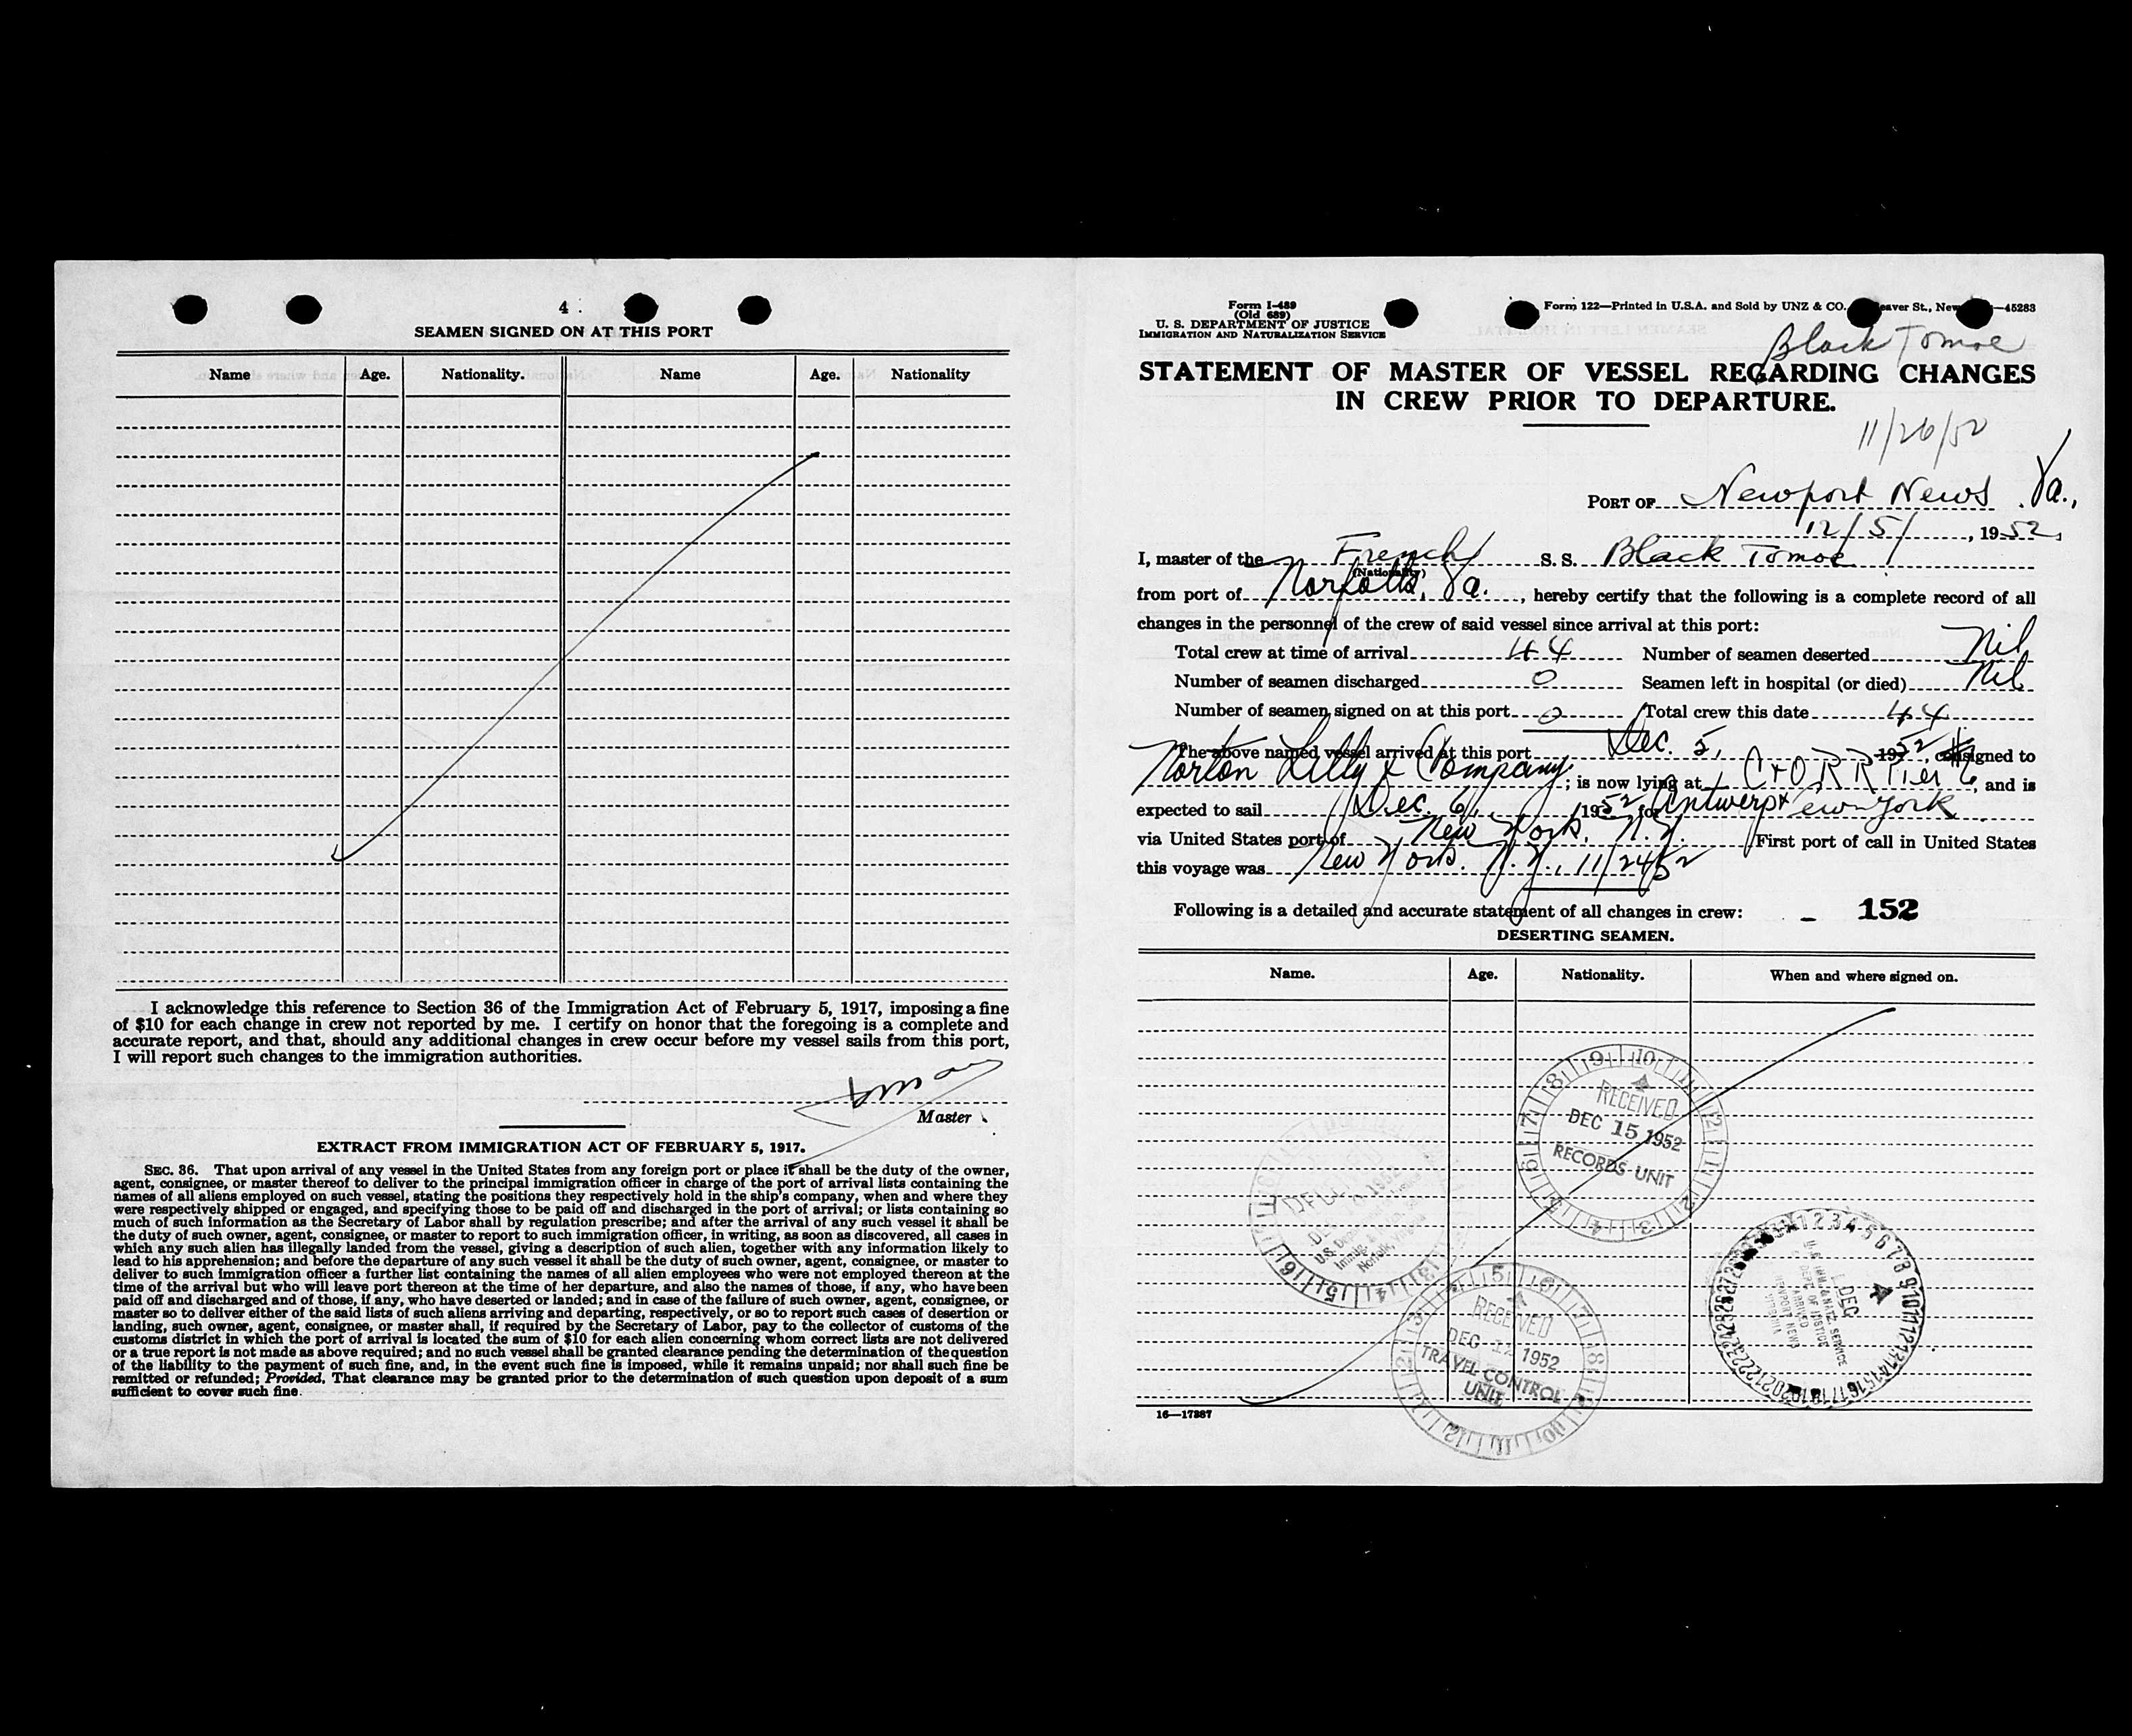 4
SEAMEN SIGNED ON AT THIS PORT
Name Age. Nationality. Name Age. Nationality
I acknowledge this reference to Section 36 of the Immigration Act of February 5, 1917, imposing a fine
of $10 for each change in crew not reported by me. I certify on honor that the foregoing is a complete and
accurate report, and that, should any additional changes in crew occur before my vessel sails from this port,
I will report such changes to the immigration authorities.
Master
EXTRACT FROM IMMIGRATION ACT OF FEBRUARY 5, 1917.
SEC. 36. That upon arrival of any vessel in the United States from any foreign port or place it shall be the duty of the owner,
agent, consignee, or master thereof to deliver to the principal immigration officer in charge of the port of arrival lists containing the
names of all aliens employed on such vessel, stating the positions they respectively hold in the ship's company, when and where they
were respectively shipped or engaged, and specifying those to be paid off and discharged in the port of arrival; or lists containing so
much of such information as the Secretary of Labor shall by regulation prescribe; and after the arrival of any such vessel it shall be
the duty of such owner, agent, consignee, or master to report to such immigration officer, in writing, as soon as discovered, all cases in
which any such alien has illegally landed from the vessel, giving a description of such alien, together with any information likely to
lead to his apprehension; and before the departure of any such vessel it shall be the duty of such owner, agent, consignee, or master to
deliver to such immigration officer a further list containing the names of all alien employees who were not employed thereon at the
time of the arrival but who will leave port thereon at the time of her departure, and also the names of those, if any, who have been
paid off and discharged and of those, if any, who have deserted or landed; and in case of the failure of such owner, agent, consignee, or
master so to deliver either of the said lists of such aliens arriving and departing, respectively, or so to report such cases of desertion or
landing, such owner, agent, consignee, or master shall, if required by the Secretary of Labor, pay to the collector of customs of the
customs district in which the port of arrival is located the sum of $10 for each alien concerning whom correct lists are not delivered
or a true report is not made as above required; and no such vessel shall be granted clearance pending the determination of the question
of the liability to the payment of such fine, and, in the event such fine is imposed, while it remains unpaid; nor shall such fine be
remitted or refunded; Provided, That clearance may be granted prior to the determination of such question upon deposit of a sum
sufficient to cover such fine.
Form I-489
(Old 689)
U. S. DEPARTMENT OF JUSTICE
IMMIGRATION AND NATURALIZATION SERVICE
Form 122—Printed in U.S.A. and Sold by UNZ & CO. eaver St., New —45283
Black Tomoe
STATEMENT OF MASTER OF VESSEL REGARDING CHANGES
IN CREW PRIOR TO DEPARTURE.
11/26/52
PORT OF Newport News Va.,
12/5/, 1952.
I, master of the French S. S. Black Tomoe
(Nationality)
from port of Norfolk, Va., hereby certify that the following is a complete record of all
changes in the personnel of the crew of said vessel since arrival at this port:
Total crew at time of arrival 44 Number of seamen deserted Nil
Number of seamen discharged 0 Seamen left in hospital (or died) Nil
Number of seamen signed on at this port 0 Total crew this date 44
The above named vessel arrived at this port Dec. 5, 1952, consigned to
Norton Lilly & Company; is now lying at C+O RR Pier #6, and is
expected to sail Dec. 6, 1952 for Antwerp New York
via United States port of New York, N.Y. First port of call in United States
this voyage was New York. N.Y., 11/24/52
Following is a detailed and accurate statement of all changes in crew: - 152
DESERTING SEAMEN.
Name. Age. Nationality. When and where signed on.
RECEIVED
DEC 15 1952
RECORDS UNIT
RECEIVED
DEC 12 1952
TRAVEL CONTROL
UNIT
DEC
U.S. IMMI. & NATZ. SERVICE
DEPT OF JUSTICE
ARRIVED
NEWPORT NEWS
VIRGINIA
16—17887